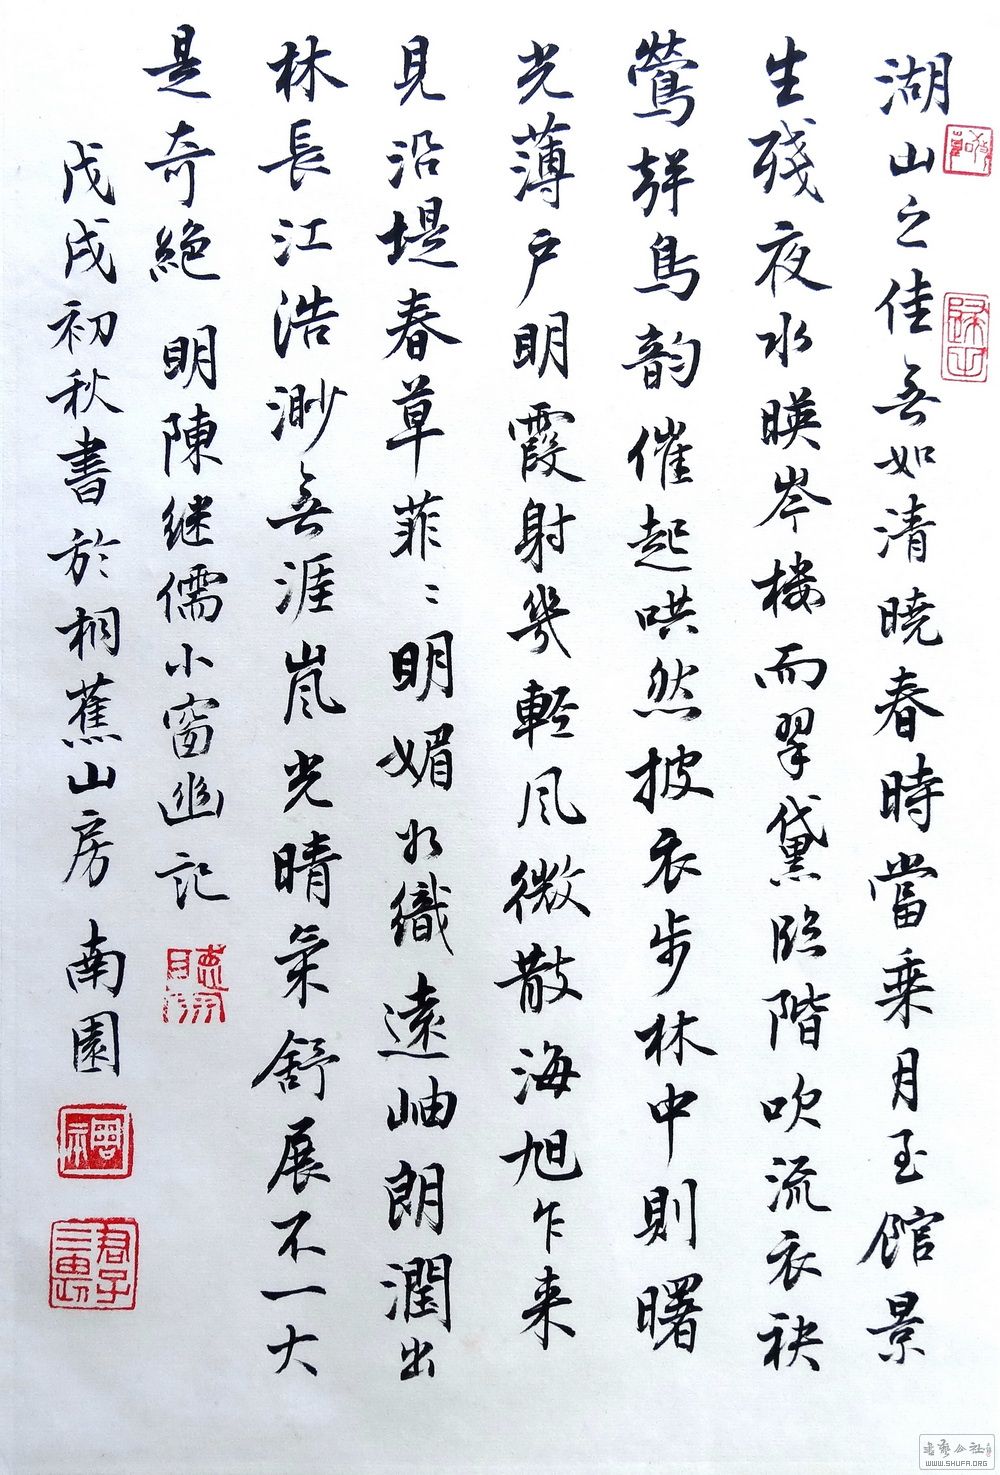 湖山之佳无如清曉春時當乗月至館景
生殘夜水暎岑楼而翠黛臨階吹流衣袂
鶯聲鳥韵催起哄然披衣步林中則曙
光薄户明霞射幾輕风微散海旭乍来
見沿堤春草菲〻明媚如織遠岫朗潤出
林長江浩渺无涯嵐光晴氣舒展不一大
是奇絶 明陳継儒小窗幽记
戊戌初秋書於桐蕉山房南園
君子
書藝公社
WWW.SHUFA.ORG